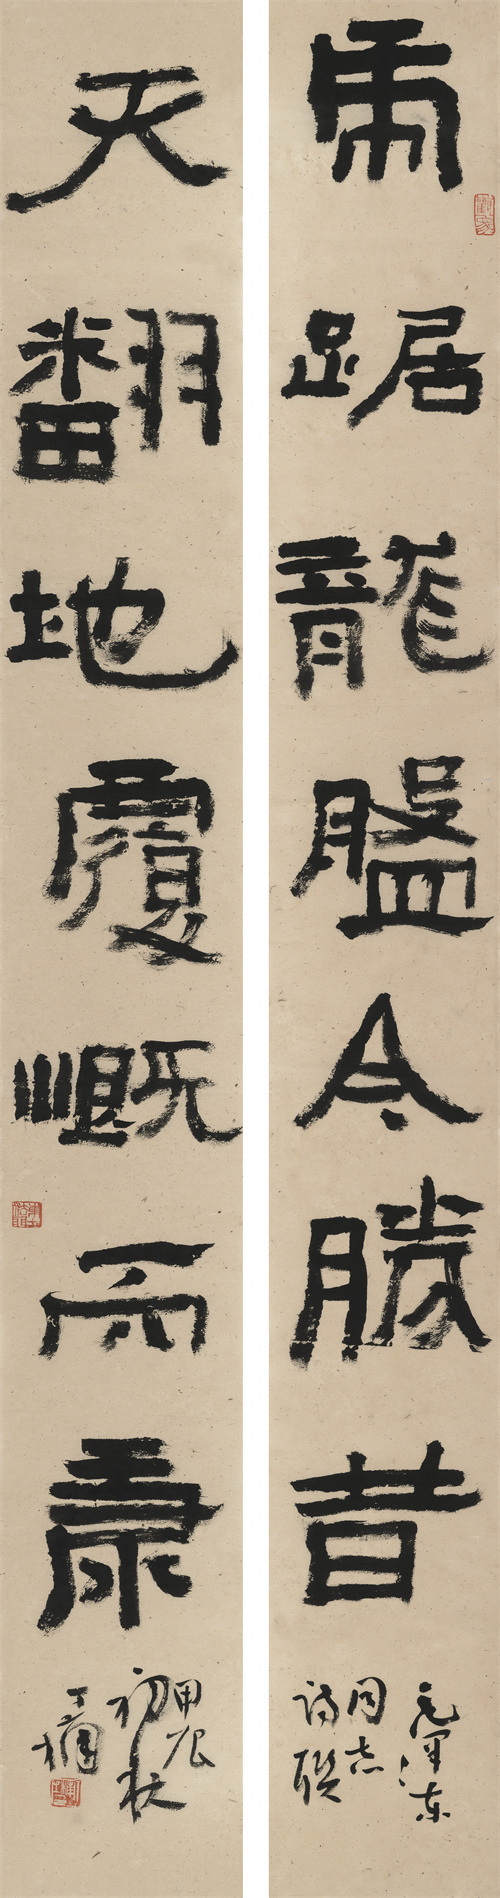 虎踞龍盤今勝昔
毛澤東
同志
詩聯
天翻地覆慨而康
甲辰
初秋